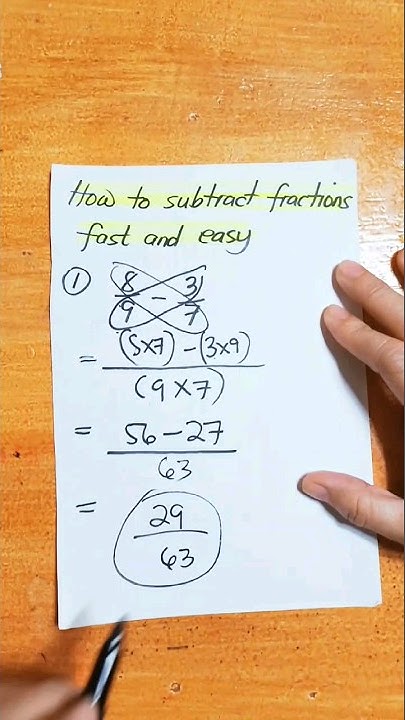 How to subtract fractions
fast and easy
① 8/9 - 3/7
= (5x7) - (3x9) / (9x7)
= 56 - 27 / 63
= 29 / 63